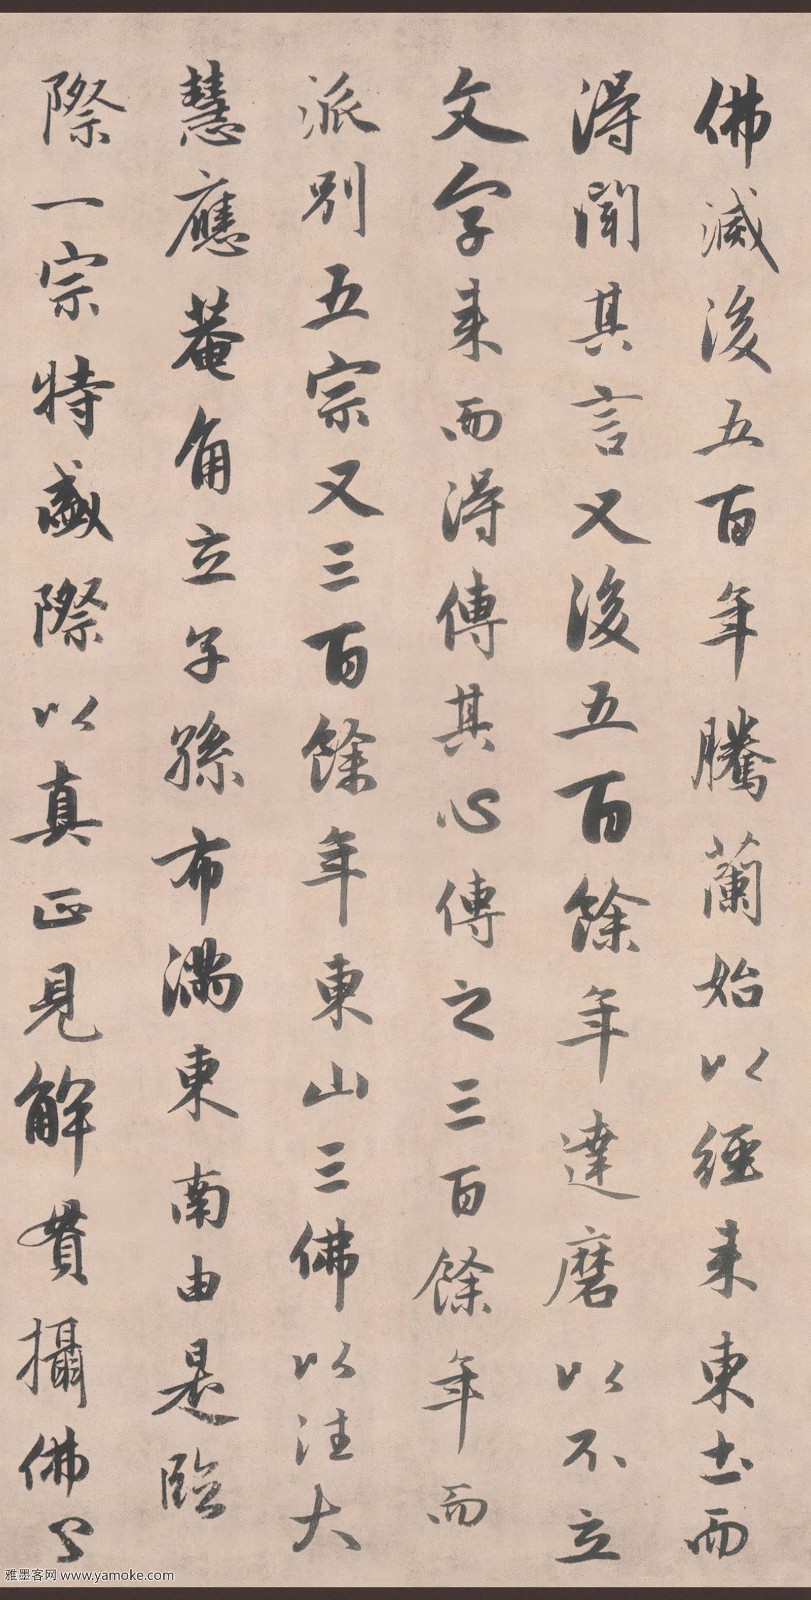 佛滅後五百年騰蘭始以經来東土而
得聞其言又後五百餘年達磨以不立
文字来而得傳其心傳之三百餘年而
派別五宗又三百餘年東山三佛以法大
慧應菴角立子孫布滿東南由是臨
際一宗特盛際以真正見解貫攝佛
雅墨客网 www.yamoke.com